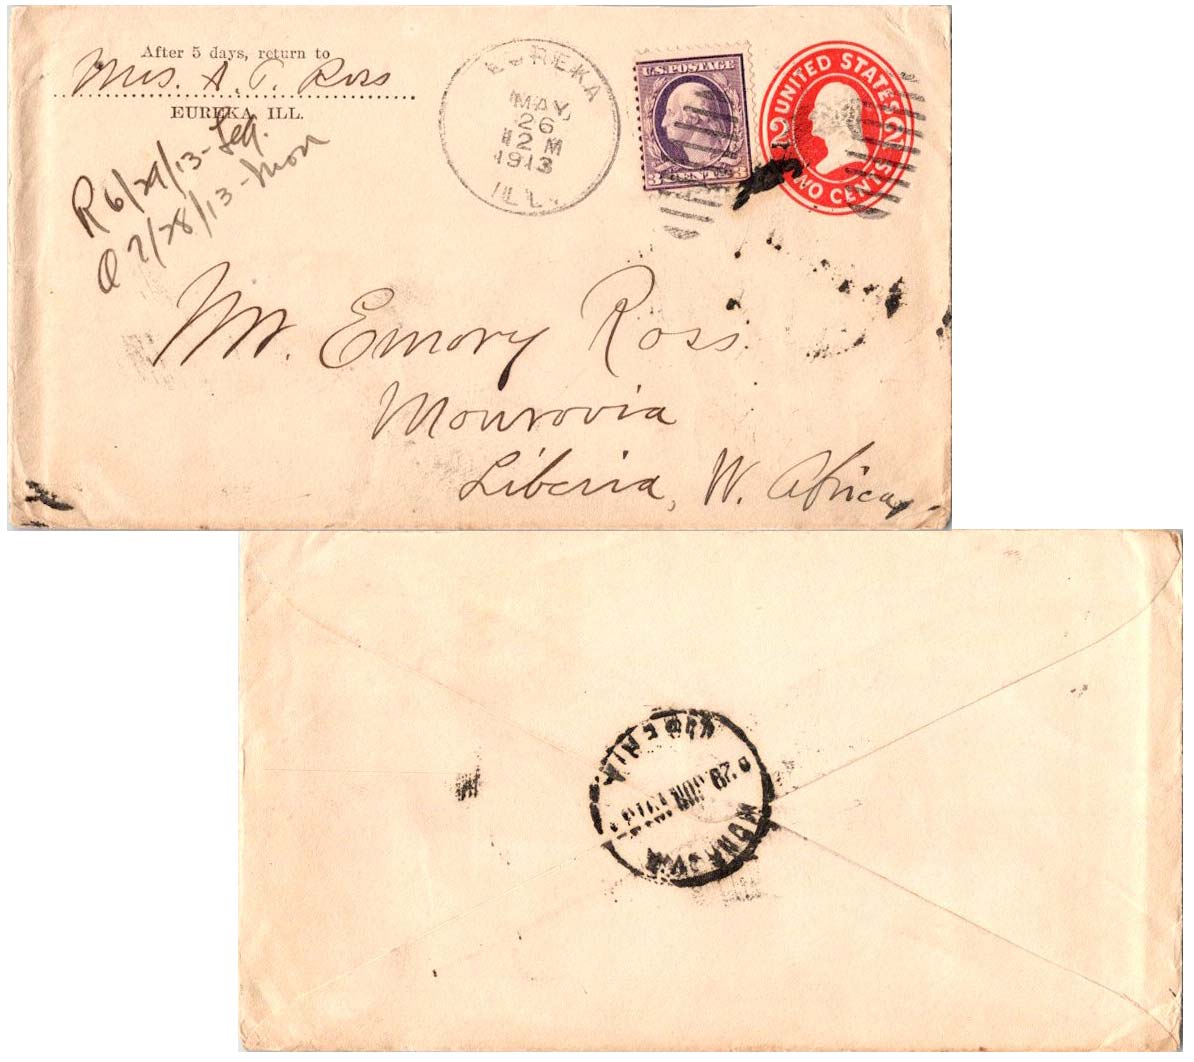 After 5 days, return to
Mrs. A. T. Ross
EUREKA, ILL.
R 6/29/13-
7/28/13-Mon
EUREKA
MAY
26
12 M
1913
ILL.
U.S. POSTAGE
3 CENTS 3
UNITED STATES
2 2
TWO CENTS
Mr. Emory Ross
Monrovia
Liberia, W. Africa,
LIBERIA
29 JUN 1913
MONROVIA